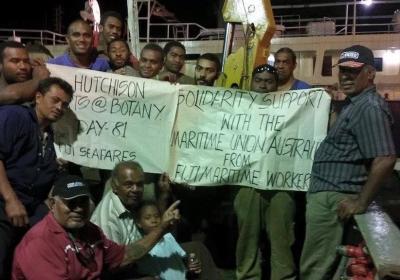 HUTCHISON
@ BOTANY
DAY-81
SEAFARES
SOLIDERITY SUPPORT
WITH THE
MARITIME UNION AUSTRALIA
FROM
FIJI MARITIME WORKERS